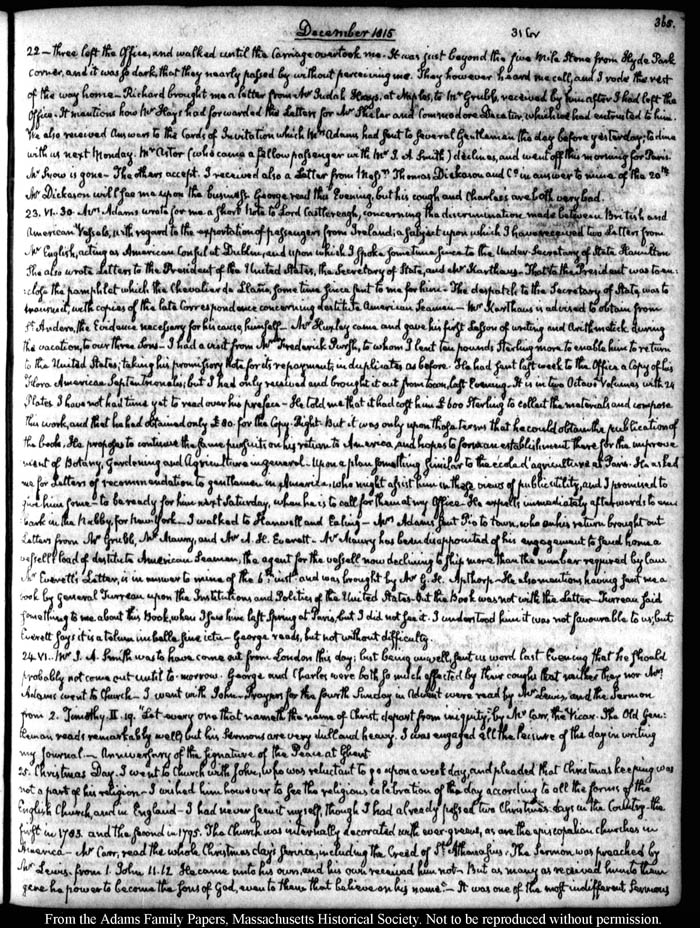 December 1815
31 Gr
365.
22 — three left the Office, and walked until the Carriage overtook me. It was just beyond the five Mile Stone from Hyde Park
Corner, and it was so dark, that they nearly passed by without perceiving me. They however heard me call, and I rode the rest
of the way home — Richard brought me a letter from Mr Judah Hays, at Naples, to Mr Grubb, received by him after I had left the
Office. It mentions how Mr Hays had forwarded the Letters for Mr Shaler and Commodore Decatur, which we had entrusted to him.
We also received Answers to the Cards of Invitation which Mrs Adams had sent to several Gentlemen the day before yesterday, to dine
with us next Monday. Mr Astor (who came a fellow passenger with Mr J. A. Smith) declines, and went off this morning for Paris.
Mr is gone — The others accept. I received also a Letter from Messrs Thomas Dickason and Co in answer to mine of the 20th
Mr Dickason will see me upon the business. George read this Evening, but his cough and Charles's are both very bad.
23. VI. 30. Mrs Adams wrote for me a short Note to Lord Castlereagh, concerning the discrimination made between British and
American Vessels, with regard to the exportation of passengers from Ireland; a subject upon which I have received two Letters from
Mr English, acting as American Consul at Dublin, and upon which I spoke some time since to the Under-Secretary of State Hamilton
She also wrote Letters to the President of the United States, the Secretary of State, and Mr Karthaus — That to the President was to en:
close the pamphlet which the Chevalier de Llaño, some time since sent to me for him — The despatch to the Secretary of State, was to
transmit, with copies of the late Correspondence concerning destitute American Seamen — Mr Karthaus is advised to obtain from
St Andero, the Evidence necessary for his cause himself — Mr Huxley came and gave his first Lesson of writing and Arithmetick during
the vacation, to our three Sons — I had a visit from Mr Frederick Pursh, to whom I lent ten pounds Sterling more to enable him to return
to the United States; taking his promissory Note for its repayment, in duplicates as before. He had sent last week to the Office a Copy of his
Flora America Septentrionalis; but I had only received and brought it out from town, last Evening. It is in two Octavo Volumes with 24
Plates. I have not had time yet to read over his preface — He told me that it had cost him £600 Sterling to collect the materials and compose
this work, and that he had obtained only £80. for the Copy-Right. But it was only upon those terms that he could obtain the publication of
the book. He proposes to continue the same pursuit on his return to America, and hopes to form an establishment there for the improve
ment of Botany, Gardening and Agriculture in general. Upon a plan something similar to the ecole d'agriculture at Paris. He asked
me for Letters of recommendation to gentlemen in America, who might assist him in these views of public utility, and I promised to
give him some — to be ready for him next Saturday, when he is to call for them at my Office — He expects immediately afterwards to em
bark in the Nabby, for New York — I walked to Hanwell and Ealing — Mrs Adams sent to town, who on his return brought out
Letters from Mr Grubb, Mr Maury, and Mr A. H. Everett — Mr Maury has been disappointed of his engagement to send home a
vessell load of destitute American Seamen, the agent for the vessell now declining to ship more than the number required by law
Mr Everett's Letter, is in answer to mine of the 6th inst and was brought by Mr G. H. Apthorp — He also mentions having sent me a
book by General Turreau upon the Institutions and Politics of the United States. But the Book was not with the Letter — Turreau said
something to me about this Book, when I saw him last Spring at Paris, but I did not see it. I understood him it was not favourable to us; but
Everett says it is a telum imbelle sine ictu — George reads, but not without difficulty.
24. VI.. Mr J. A. Smith was to have come out from London this day; but being unwell, sent us word last Evening that he should
probably not come out until to-morrow. George and Charles were both so much affected by their coughs that neither they nor Mrs
Adams went to Church — I went with John. Prayers for the fourth Sunday in Advent were read by Mr Lewis, and the Sermon
from 2. Timothy. II. 19. "Let every one that nameth the name of Christ, depart from iniquity," by Mr Carr, the Vicar. The Old Gen:
tleman reads remarkably well, but his Sermons are very dull and heavy. I was engaged all the leisure of the day in writing
my Journal — Anniversary of the signature of the Peace at Ghent
25. Christmas Day. I went to Church with John, who was reluctant to go upon a week day, and pleaded that Christmas keeping was
not a part of his religion — I wished him however to see the religious celebration of the day according to all the forms of the
English Church, and in England — I had never seen it myself, though I had already passed two Christmas days in the Country — the
first in 1783. and the second in 1795. The Church was internally decorated with ever-greens, as are the episcopalian churches in
America — Mr Carr, read the whole Christmas day's Service, including the Creed of St Athanasius. The Sermon was preached by
Mr Lewis. from 1. John. 11-12. He came unto his own, and his own received him not — But as many as received him, to them
gave he power to become the Sons of God, even to them that believe on his name" — It was one of the most indifferent Sermons
From the Adams Family Papers, Massachusetts Historical Society. Not to be reproduced without permission.